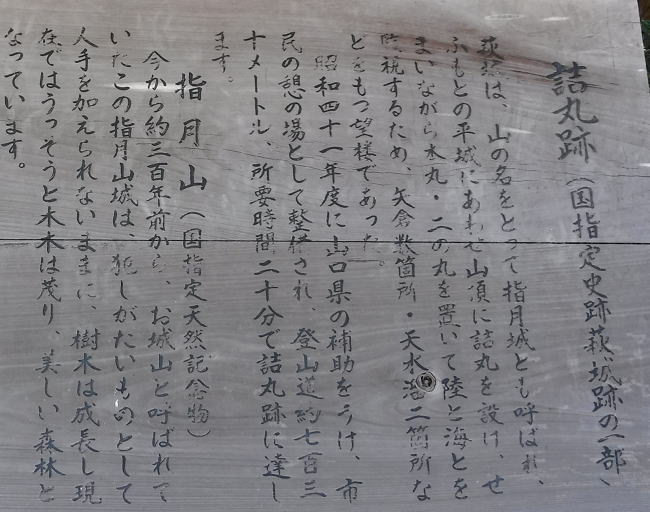 詰丸跡(国指定史跡萩城跡の一部、
萩城は、山の名をとって指月城とも呼ばれ、
ふもとの平城にあわせ山頂に詰丸を設け、せ
まいながら本丸・二の丸を置いて陸と海とを
監視するため、矢倉数箇所・天水溜二箇所な
どをもつ望楼であった。
昭和四十一年度に山口県の補助をうけ、市
民の憩の場として整備され、登山道約七百三
十メートル、所要時間二十分で詰丸跡に達し
ます。
指月山(国指定天然記念物)
今から約三百年前から、お城山と呼ばれて
いたこの指月山城は、犯しがたいものとして
人手を加えられないままに、樹木は成長し現
在ではうっそうと木木は茂り、美しい森林と
なっています。